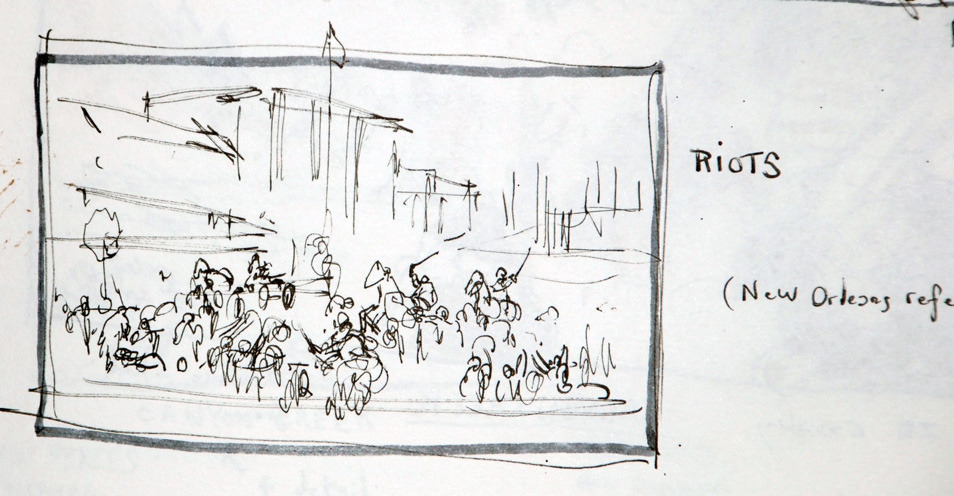 RIOTS
(New Orleans refe